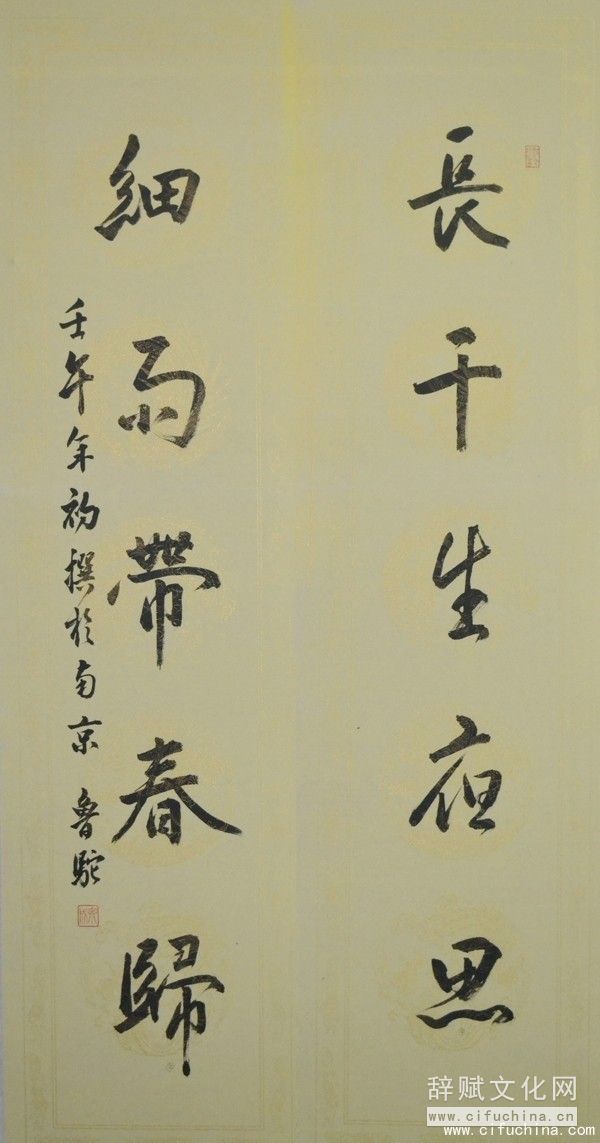 長干生夜思
細雨帶春歸
壬午年初撰於南京 魯駝
辞赋文化网
www.cifuchina.cn
www.cifuchina.com